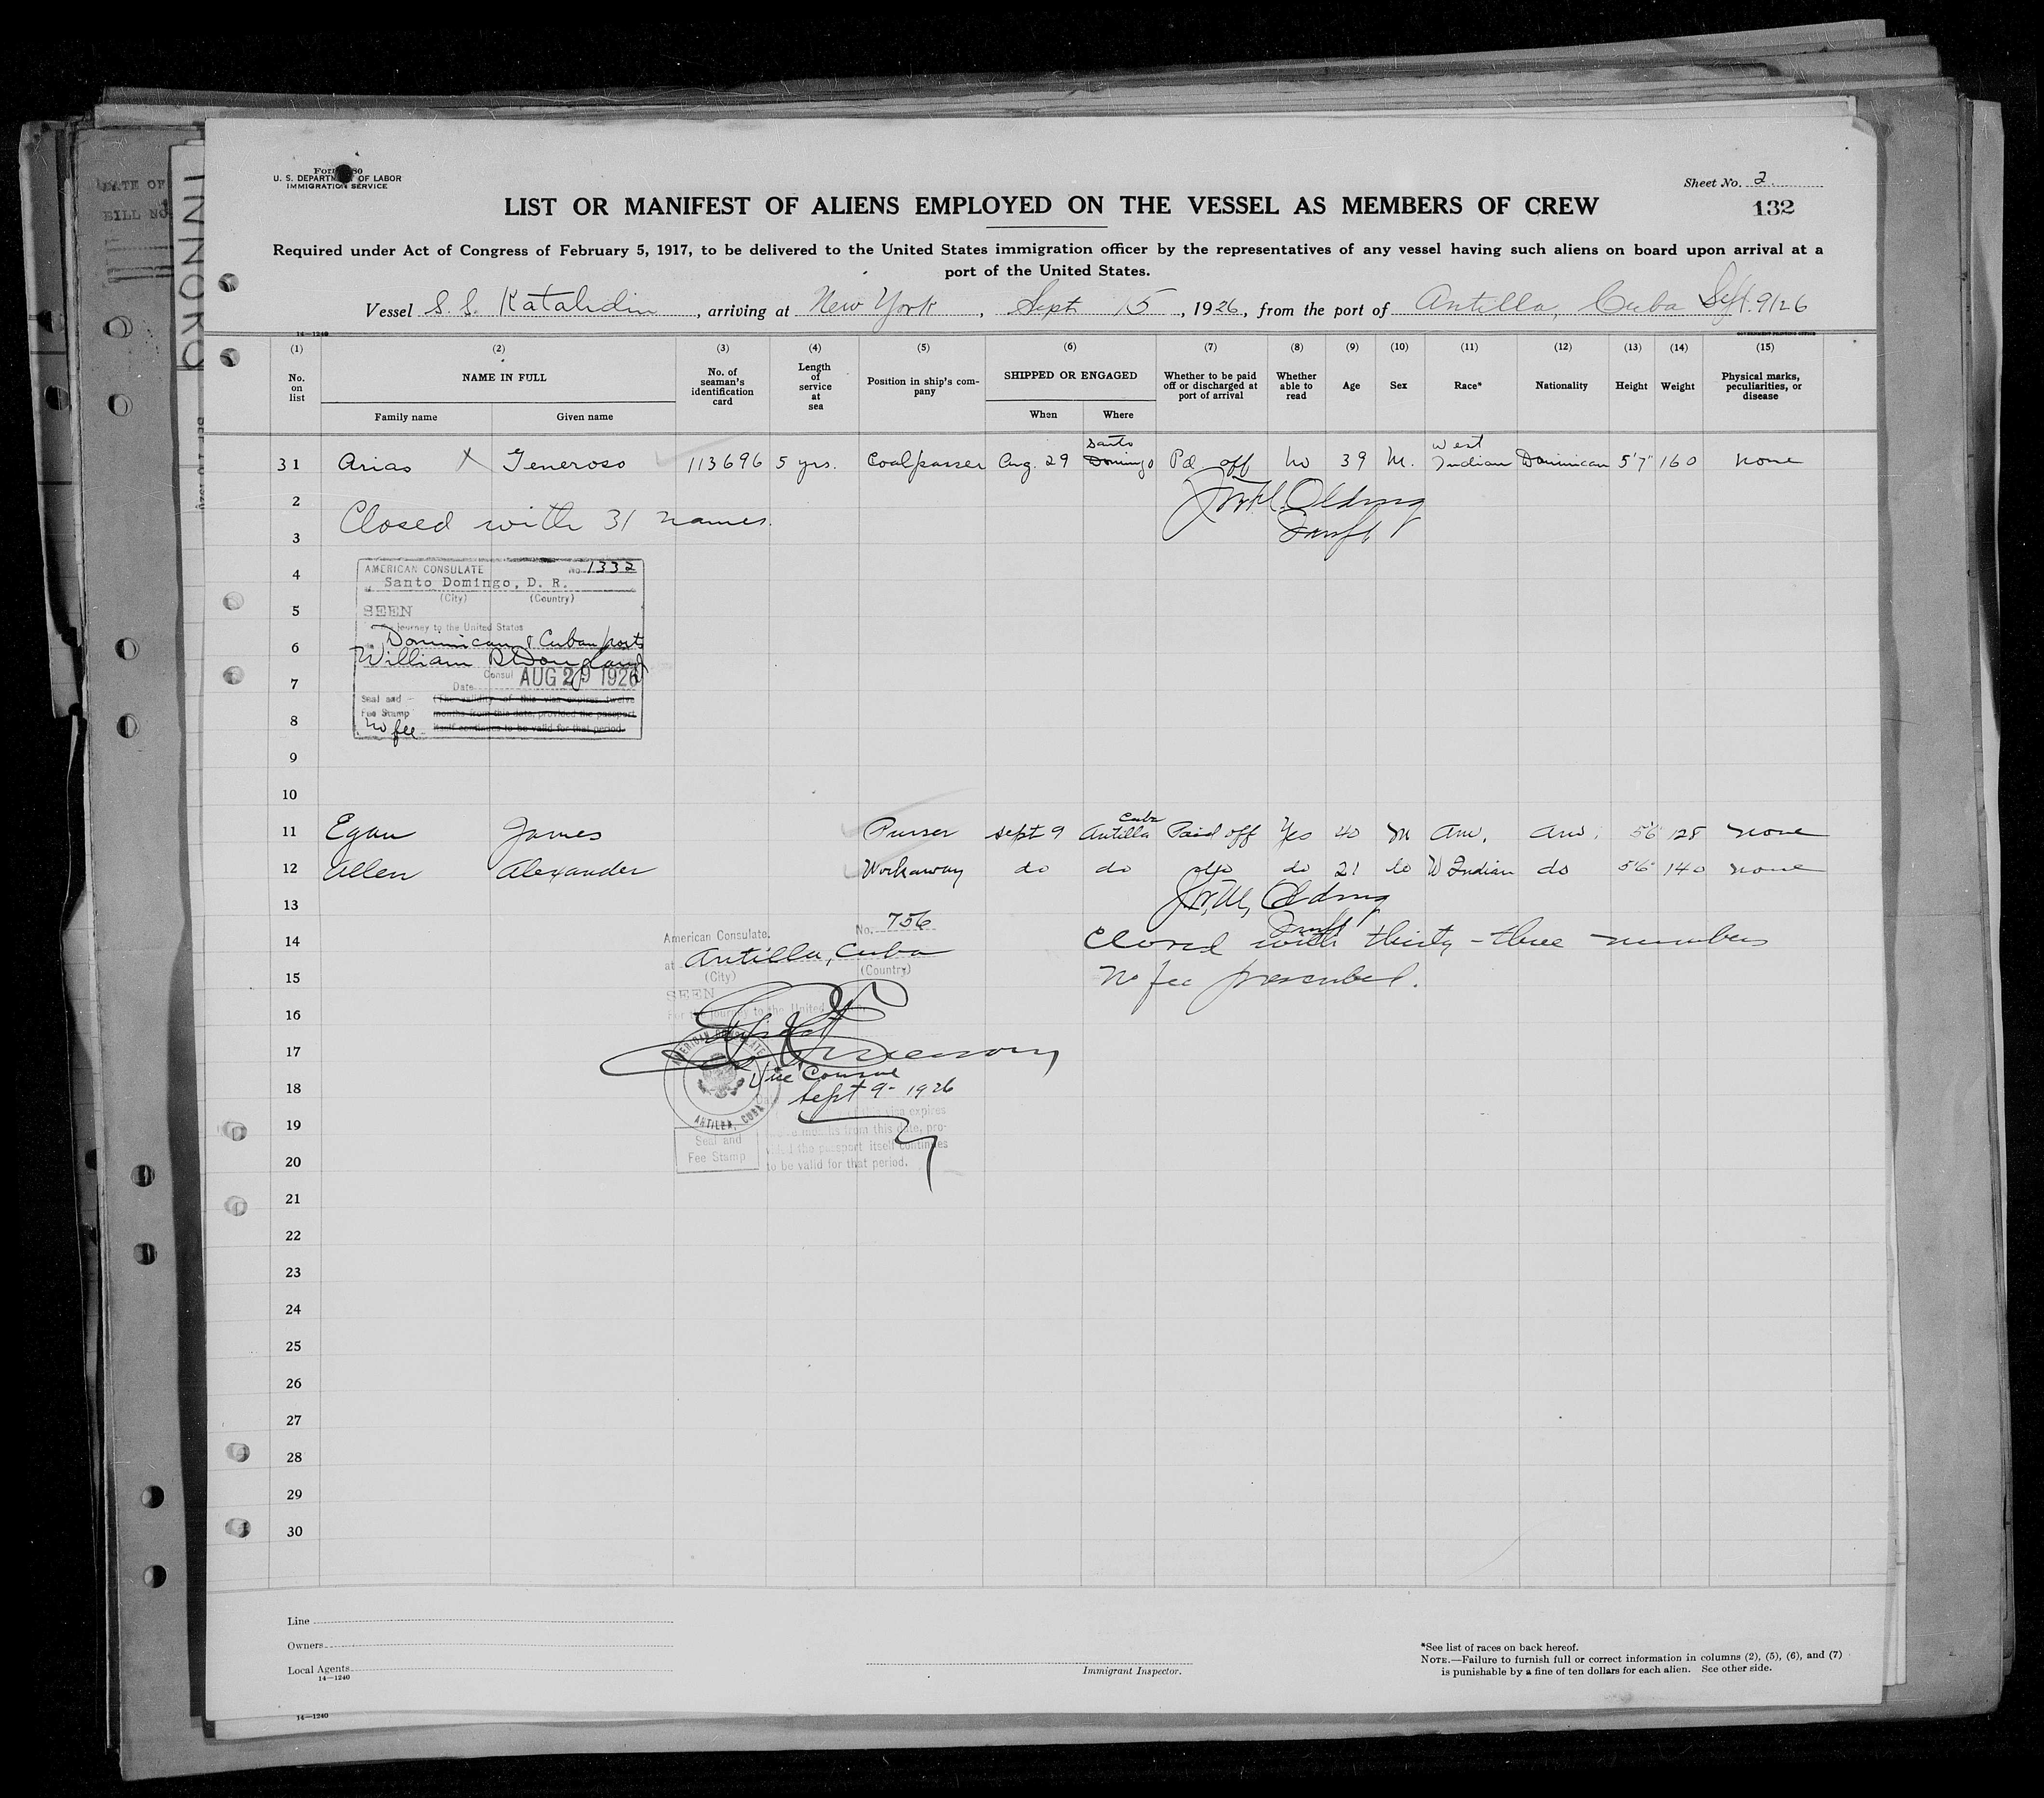 DATE OF
BILL NO
Form 680
U. S. DEPARTMENT OF LABOR
IMMIGRATION SERVICE
Sheet No. 2
LIST OR MANIFEST OF ALIENS EMPLOYED ON THE VESSEL AS MEMBERS OF CREW
132
Required under Act of Congress of February 5, 1917, to be delivered to the United States immigration officer by the representatives of any vessel having such aliens on board upon arrival at a
port of the United States.
Vessel S. S. Katahdin, arriving at New York, Sept 15, 1926, from the port of Antilla, Cuba Sept. 9/26
14—1240
GOVERNMENT PRINTING OFFICE
(1) (2) (3) (4) (5) (6) (7) (8) (9) (10) (11) (12) (13) (14) (15)
No. on list
NAME IN FULL
Family name Given name
No. of seaman's identification card
Length of service at sea
Position in ship's company
SHIPPED OR ENGAGED
When Where
Whether to be paid off or discharged at port of arrival
Whether able to read
Age
Sex
Race*
Nationality
Height
Weight
Physical marks, peculiarities, or disease
31 Arias X Generoso 113696 5 yrs. Coalpasser Aug. 29 Santo Domingo Pd. off no 39 M. West Indian Dominican 5'7" 160 none
2
Closed with 31 names.
3
4
AMERICAN CONSULATE No. 1332
Santo Domingo, D. R.
(City) (Country)
5
SEEN
journey to the United States
6
Dominican & Cuban ports
William
Consul AUG 29 1926
7
Date
Seal and (The validity of this visa expires twelve
Fee Stamp months from this date, provided the passport
8
No fee itself continues to be valid for that period.
9
10
11 Egan James Purser Sept 9 Antilla Cuba Paid off Yes 40 M Am. Am. 5'6 128 none
12 Allen Alexander Workaway do do do do 21 do W Indian do 5'6" 140 none
13
No. 756
American Consulate.
14 at Antilla, Cuba
(City) (Country)
Closed with thirty-three members
15 No fee prescribed.
SEEN
For the journey to the United
16
17
AMERICAN CONSULATE
ANTILLA, CUBA
Vice Consul
18 Sept 9- 1926
visa expires
19 months from this date, pro-
Seal and
Fee Stamp
the passport itself continues
20 to be valid for that period.
21
22
23
24
25
26
27
28
29
30
Line
Owners
Local Agents
14—1240
Immigrant Inspector.
*See list of races on back hereof.
NOTE.—Failure to furnish full or correct information in columns (2), (5), (6), and (7)
is punishable by a fine of ten dollars for each alien. See other side.
14—1240